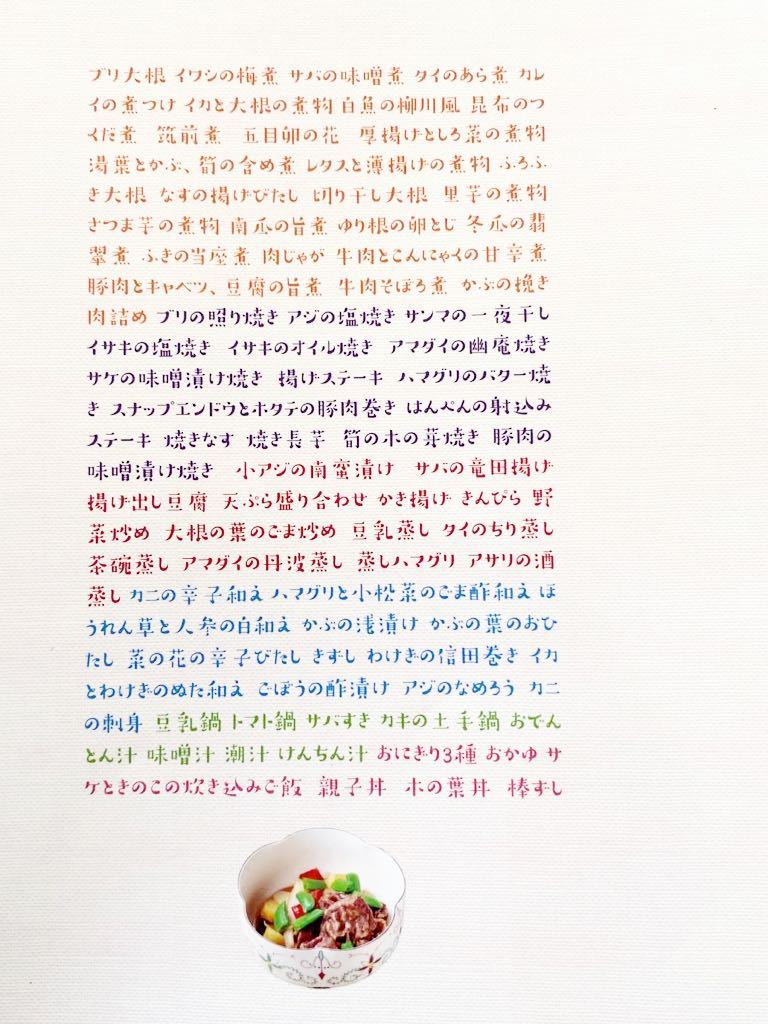 ブリ大根 イワシの梅煮 サバの味噌煮 タイのあら煮 カレ
イの煮つけ イカと大根の煮物 白魚の柳川風 昆布のつ
くだ煮 筑前煮 五目卯の花 厚揚げとしろ菜の煮物
湯葉とかぶ、筍の含め煮 レタスと薄揚げの煮物 ふろふ
き大根 なすの揚げびたし 切り干し大根 里芋の煮物
さつま芋の煮物 南瓜の旨煮 ゆり根の卵とじ 冬瓜の翡
翠煮 ふきの当座煮 肉じゃが 牛肉とこんにゃくの甘辛煮
豚肉とキャベツ、豆腐の旨煮 牛肉そぼろ煮 かぶの挽き
肉詰め ブリの照り焼き アジの塩焼き サンマの一夜干し
イサキの塩焼き イサキのオイル焼き アマダイの幽庵焼き
サケの味噌漬け焼き 揚げステーキ ハマグリのバター焼
き スナップエンドウとホタテの豚肉巻き はんぺんの射込み
ステーキ 焼きなす 焼き長芋 筍の木の芽焼き 豚肉の
味噌漬け焼き 小アジの南蛮漬け サバの竜田揚げ
揚げ出し豆腐 天ぷら盛り合わせ かき揚げ きんぴら 野
菜炒め 大根の葉のごま炒め 豆乳蒸し タイのちり蒸し
茶碗蒸し アマダイの丹波蒸し 蒸しハマグリ アサリの酒
蒸し カニの辛子和え ハマグリと小松菜のごま酢和え ほ
うれん草と人参の白和え かぶの浅漬け かぶの葉のおひ
たし 菜の花の辛子びたし きずし わけぎの信田巻き イカ
とわけぎのぬた和え ごぼうの酢漬け アジのなめろう カニ
の刺身 豆乳鍋 トマト鍋 サバすき カキの土手鍋 おでん
とん汁 味噌汁 潮汁 けんちん汁 おにぎり3種 おかゆ サ
ケときのこの炊き込みご飯 親子丼 木の葉丼 棒ずし